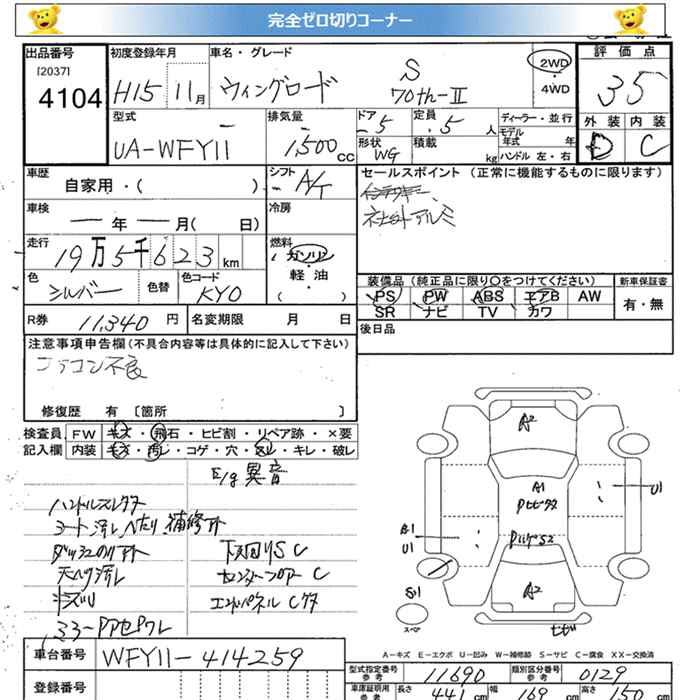 完全ゼロ切りコーナー
出品番号 初度登録年月 車名・グレード 評価点
[2037]
4104 H15 11月 ウィングロード S 70th-II 2WD・4WD 35
型式 排気量 ドア 定員 ディーラー・並行 外装 内装
UA-WFY11 1,500cc 5 5人 モデル年式 年 D C
形状 積載
WG kg ハンドル 左・右
車歴 シフト セールスポイント (正常に機能するものに限ります)
自家用・( ) A/T
車検 冷房 社外アルミ
年 月( 日)
走行 燃料
19万5千623km ガソリン
軽・油
( )
色 色替 色コード 装備品 (純正品に限り○をつけてください) 新車保証書
シルバー KY0 PS PW ABS エアB AW 有・無
SR ナビ TV カワ
R券 11,340円 名変期限 月 日 後日品
注意事項申告欄(不具合内容等は具体的に記入して下さい)
エアコン不良
修復歴 有 [箇所 ]
検査員 FW キズ・飛石・ヒビ割・リペア跡・×要
記入欄 内装 キズ・汚レ・コゲ・穴・スレ・キレ・破レ
E/g 異音
シート汚レ ヘタリ 補修ア
下廻りSC
天ハリ汚レ センターフロアーC
エンドパネルCクタ
A2
A1
U1
B1
U1
A2
S1
スペア
A-キズ E-エクボ U-凹み W-補修跡 S-サビ C-腐食 XX-交換済
車台番号 WFY11-414259
型式指定番号 参考 11690 類別区分番号 参考 0129
登録番号
車庫証明用 参考 長さ 441cm 幅 169cm 高さ 150cm